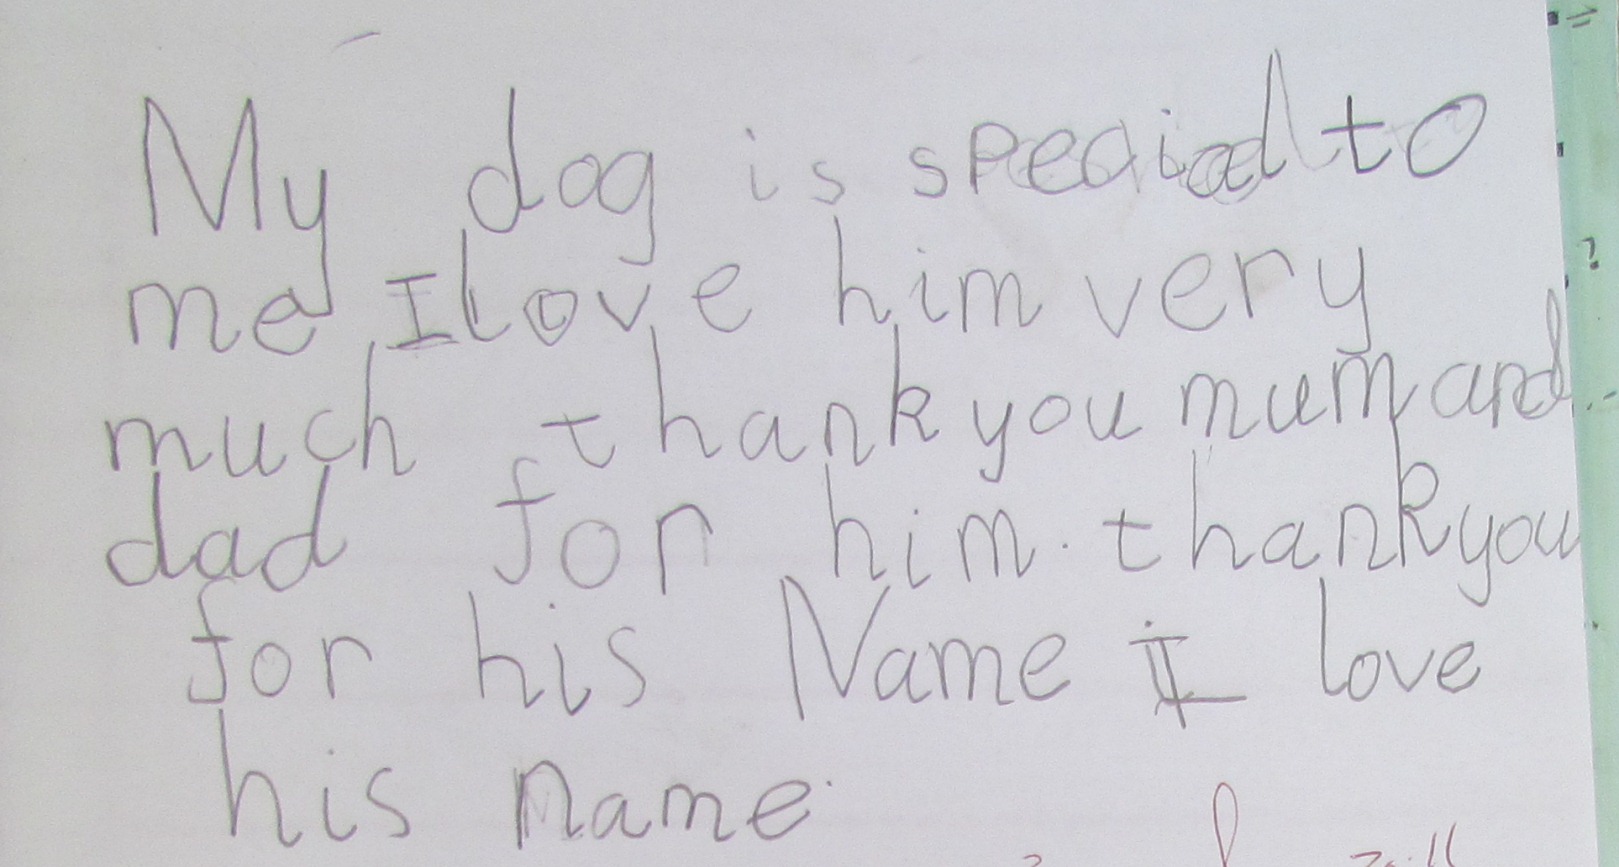 My dog is special to
me I love him very
much thank you mum and
dad for him. thank you
for his Name I love
his name.